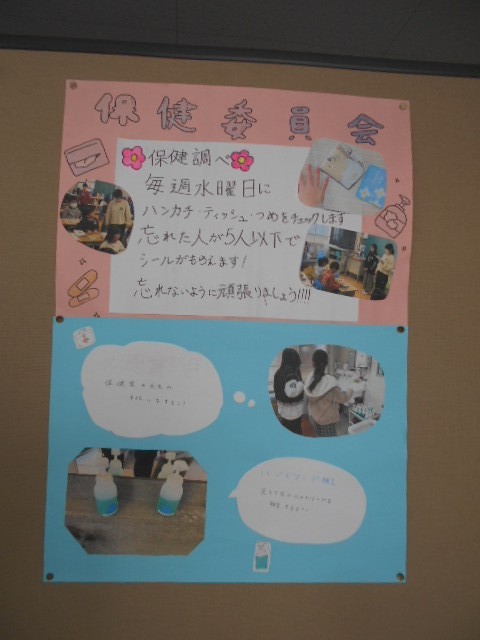 保健委員会
保健調べ
毎週水曜日に
ハンカチ・ティッシュ・つめをチェックします
忘れた人が5人以下で
シールがもらえます!
忘れないように頑張りましょう!!!!
保健室の先生の